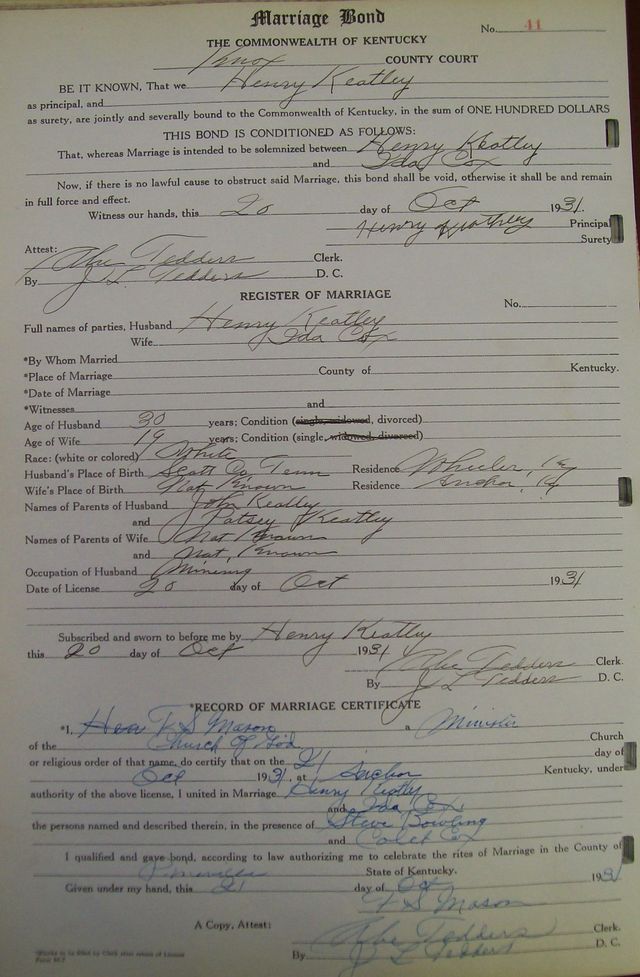 Marriage Bond
No. 41
THE COMMONWEALTH OF KENTUCKY
Knox COUNTY COURT
BE IT KNOWN, That we Henry Keatley
as principal, and
as surety, are jointly and severally bound to the Commonwealth of Kentucky, in the sum of ONE HUNDRED DOLLARS
THIS BOND IS CONDITIONED AS FOLLOWS:
That, whereas Marriage is intended to be solemnized between Henry Keatley
and Ida Cox
Now, if there is no lawful cause to obstruct said Marriage, this bond shall be void, otherwise it shall be and remain
in full force and effect.
Witness our hands, this 20 day of Oct 1931.
Henry Principal
Surety
Attest:
Abe Tedders Clerk.
By J L Tedders D. C.
REGISTER OF MARRIAGE
No.
Full names of parties, Husband Henry Keatley
Wife Ida Cox
*By Whom Married
*Place of Marriage County of Kentucky.
*Date of Marriage
*Witnesses and
Age of Husband 30 years; Condition (single, widowed, divorced)
Age of Wife 19 years; Condition (single, widowed, divorced)
Race: (white or colored) White
Husband's Place of Birth Scott Co Tenn Residence Wheeler, Ky
Wife's Place of Birth Not Known Residence Anchor, Ky
Names of Parents of Husband John Keatley
and Patsey Keatley
Names of Parents of Wife Not Known
and Not, Known
Occupation of Husband Mining
Date of License 20 day of Oct 1931
Subscribed and sworn to before me by Henry Keatley
this 20 day of Oct 1931
Abe Tedders Clerk.
By J L Tedders D. C.
*RECORD OF MARRIAGE CERTIFICATE
*I, F S Mason a Minister
of the Church Of God Church
or religious order of that name, do certify that on the 21 day of
Oct 1931, at Anchor Kentucky, under
authority of the above license, I united in Marriage Henry
and Ida Cox
the persons named and described therein, in the presence of Steve Bowling
and Caleb Cox
I qualified and gave bond, according to law authorizing me to celebrate the rites of Marriage in the County of
State of Kentucky.
Given under my hand, this 21 day of Oct 1931
F S Mason
A Copy, Attest: Abe Tedders Clerk.
By J L Tedders D. C.